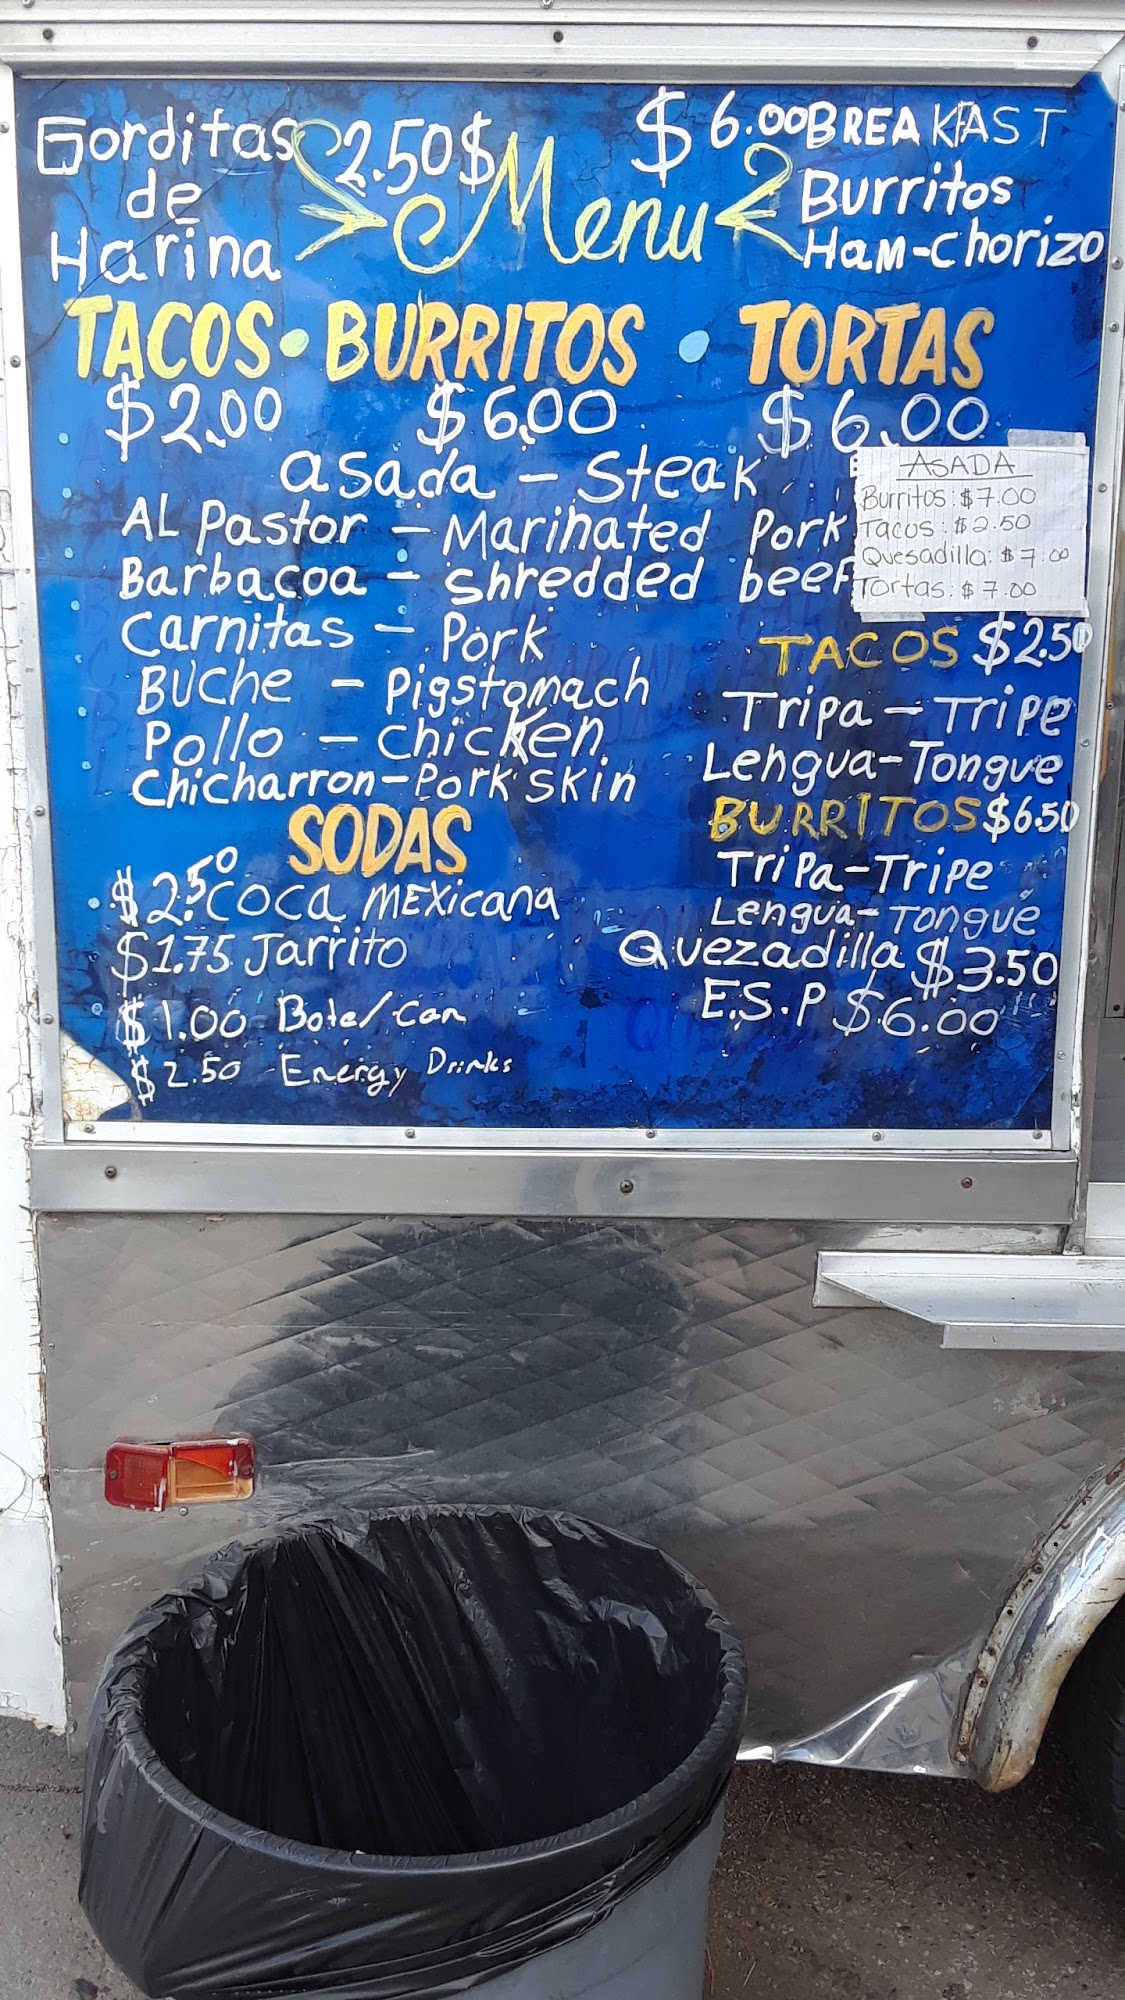 Gorditas 2.50$
de
Harina
Menu
$ 6.00 BREAKFAST
Burritos
Ham-Chorizo
TACOS • BURRITOS • TORTAS
$2.00 $6.00 $6.00
asada - Steak
AL Pastor - Marinated Pork
Barbacoa - Shredded beef
Carnitas - Pork
Buche - Pigstomach
Pollo - Chicken
Chicharron-Pork skin
ASADA
Burritos: $7.00
Tacos: $2.50
Quesadilla: $7.00
Tortas: $7.00
TACOS $2.50
Tripa - Tripe
Lengua-Tongue
BURRITOS $6.50
Tripa-Tripe
Lengua-Tongue
Quezadilla $3.50
E.S.P $6.00
SODAS
$2.50 coca MEXicana
$1.75 Jarrito
$1.00 Bote/Can
$2.50 Energy Drinks